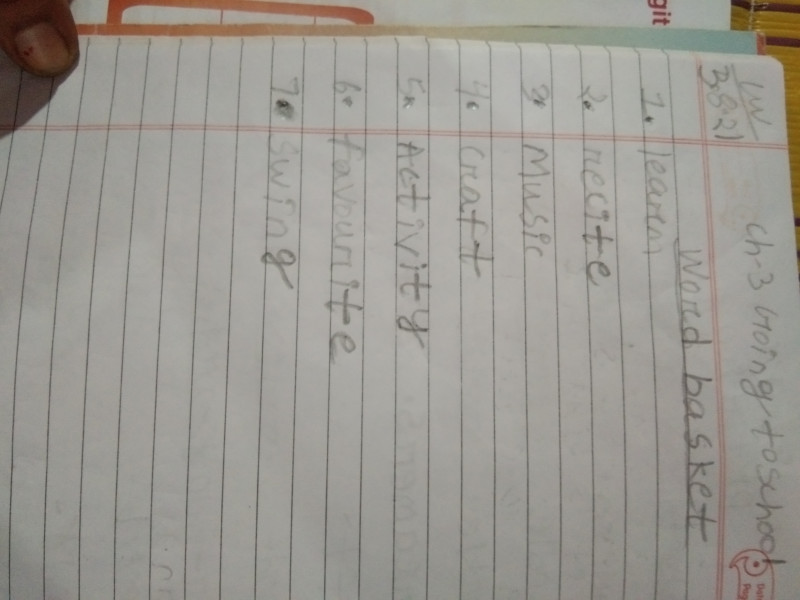 git
1W
3.8.21
ch-3 Going to school
Word basket
1. learn
2. recite
3. Music
4. craft
5. Activity
6. favourite
7. swing